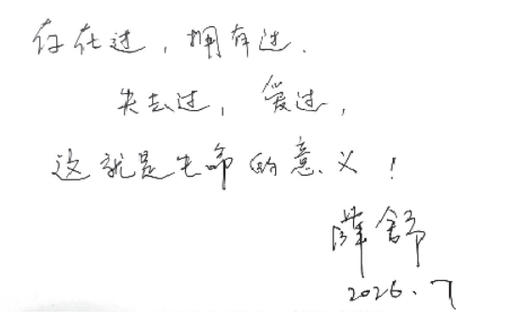 存在过，拥有过.
失去过，爱过，
这就是生命的意义！
薛舒
2026.7